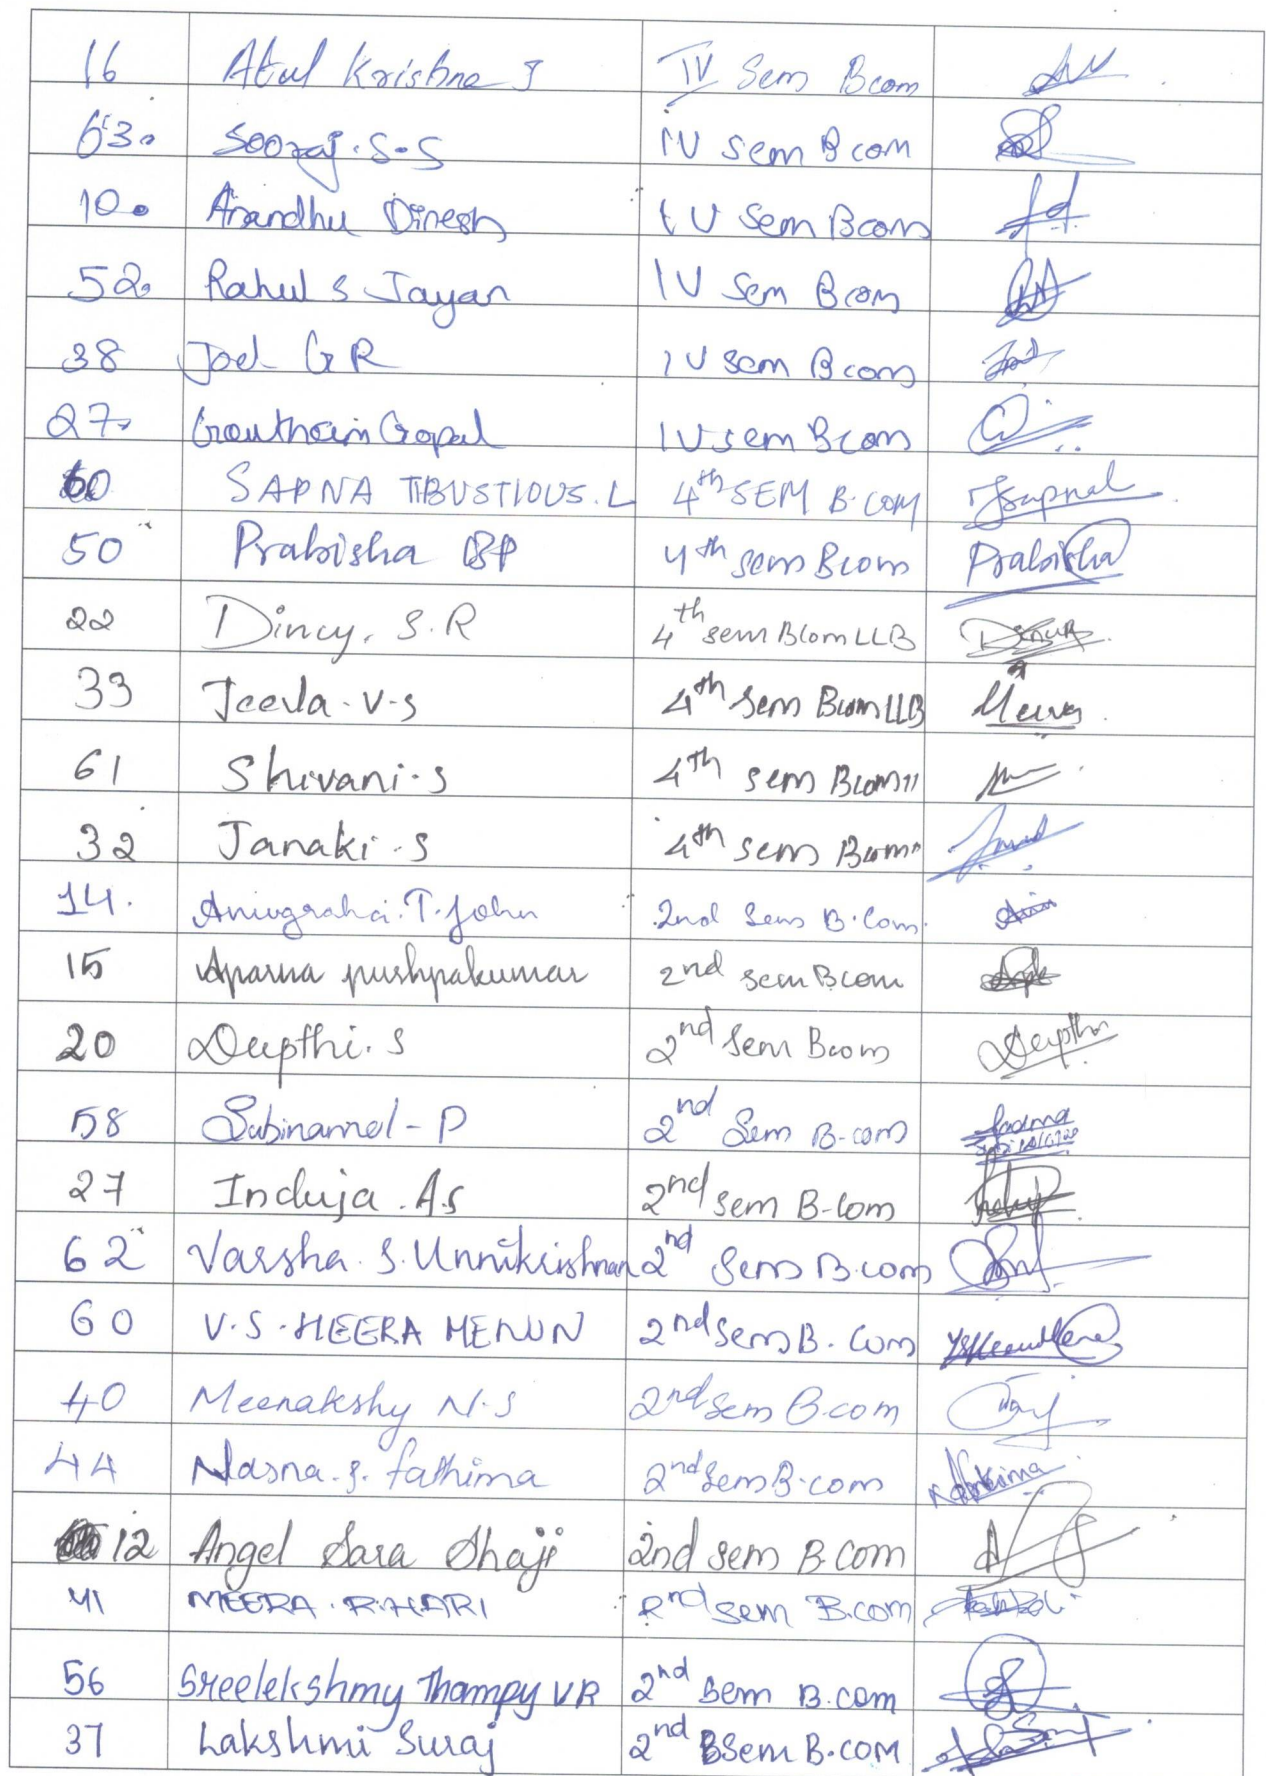 16 Atul Krishna J IV Sem Bcom
63. Sooraj.S.S IV Sem Bcom
10. Anandhu Dinesh IV Sem Bcom
52. Rahul S Jayan IV Sem Bcom
38 Joel G R IV Sem Bcom
27. Gowtham Gopal IV sem Bcom
60 SAPNA TIBUSTIOUS. L 4th SEM B.COM Sapnal
50 Prabisha BP 4th sem Bcom Prabisha
22 Dincy. S.R 4th sem Bcom LLB
33 Jeeva.V.S 4th Sem Bcom LLB
61 Shivani.S 4th sem Bcom 11
32 Janaki.S 4th sem Bcom"
14. Anugraha.T.John 2nd Sem B.Com.
15 Aparna pushpakumar 2nd sem Bcom
20 Deepthi.S 2nd Sem Bcom Deepthi
58 Subinamol-P 2nd Sem B-com
27 Induja.A.S 2nd sem B-Com
62 Varsha.S.Unnikrishnan 2nd Sem B.com
60 V.S.HEERA MENON 2nd Sem B.Com
40 Meenakshy N.S 2nd Sem B.com
44 Nasna.S.fathima 2nd Sem B.com
12 Angel Sara Shaji 2nd sem B.com
41 MEERA.R.HARI 2nd sem B.com
56 Sreelekshmy Thampy VR 2nd Sem B.com
37 Lakshmi Suraj 2nd Sem B.COM